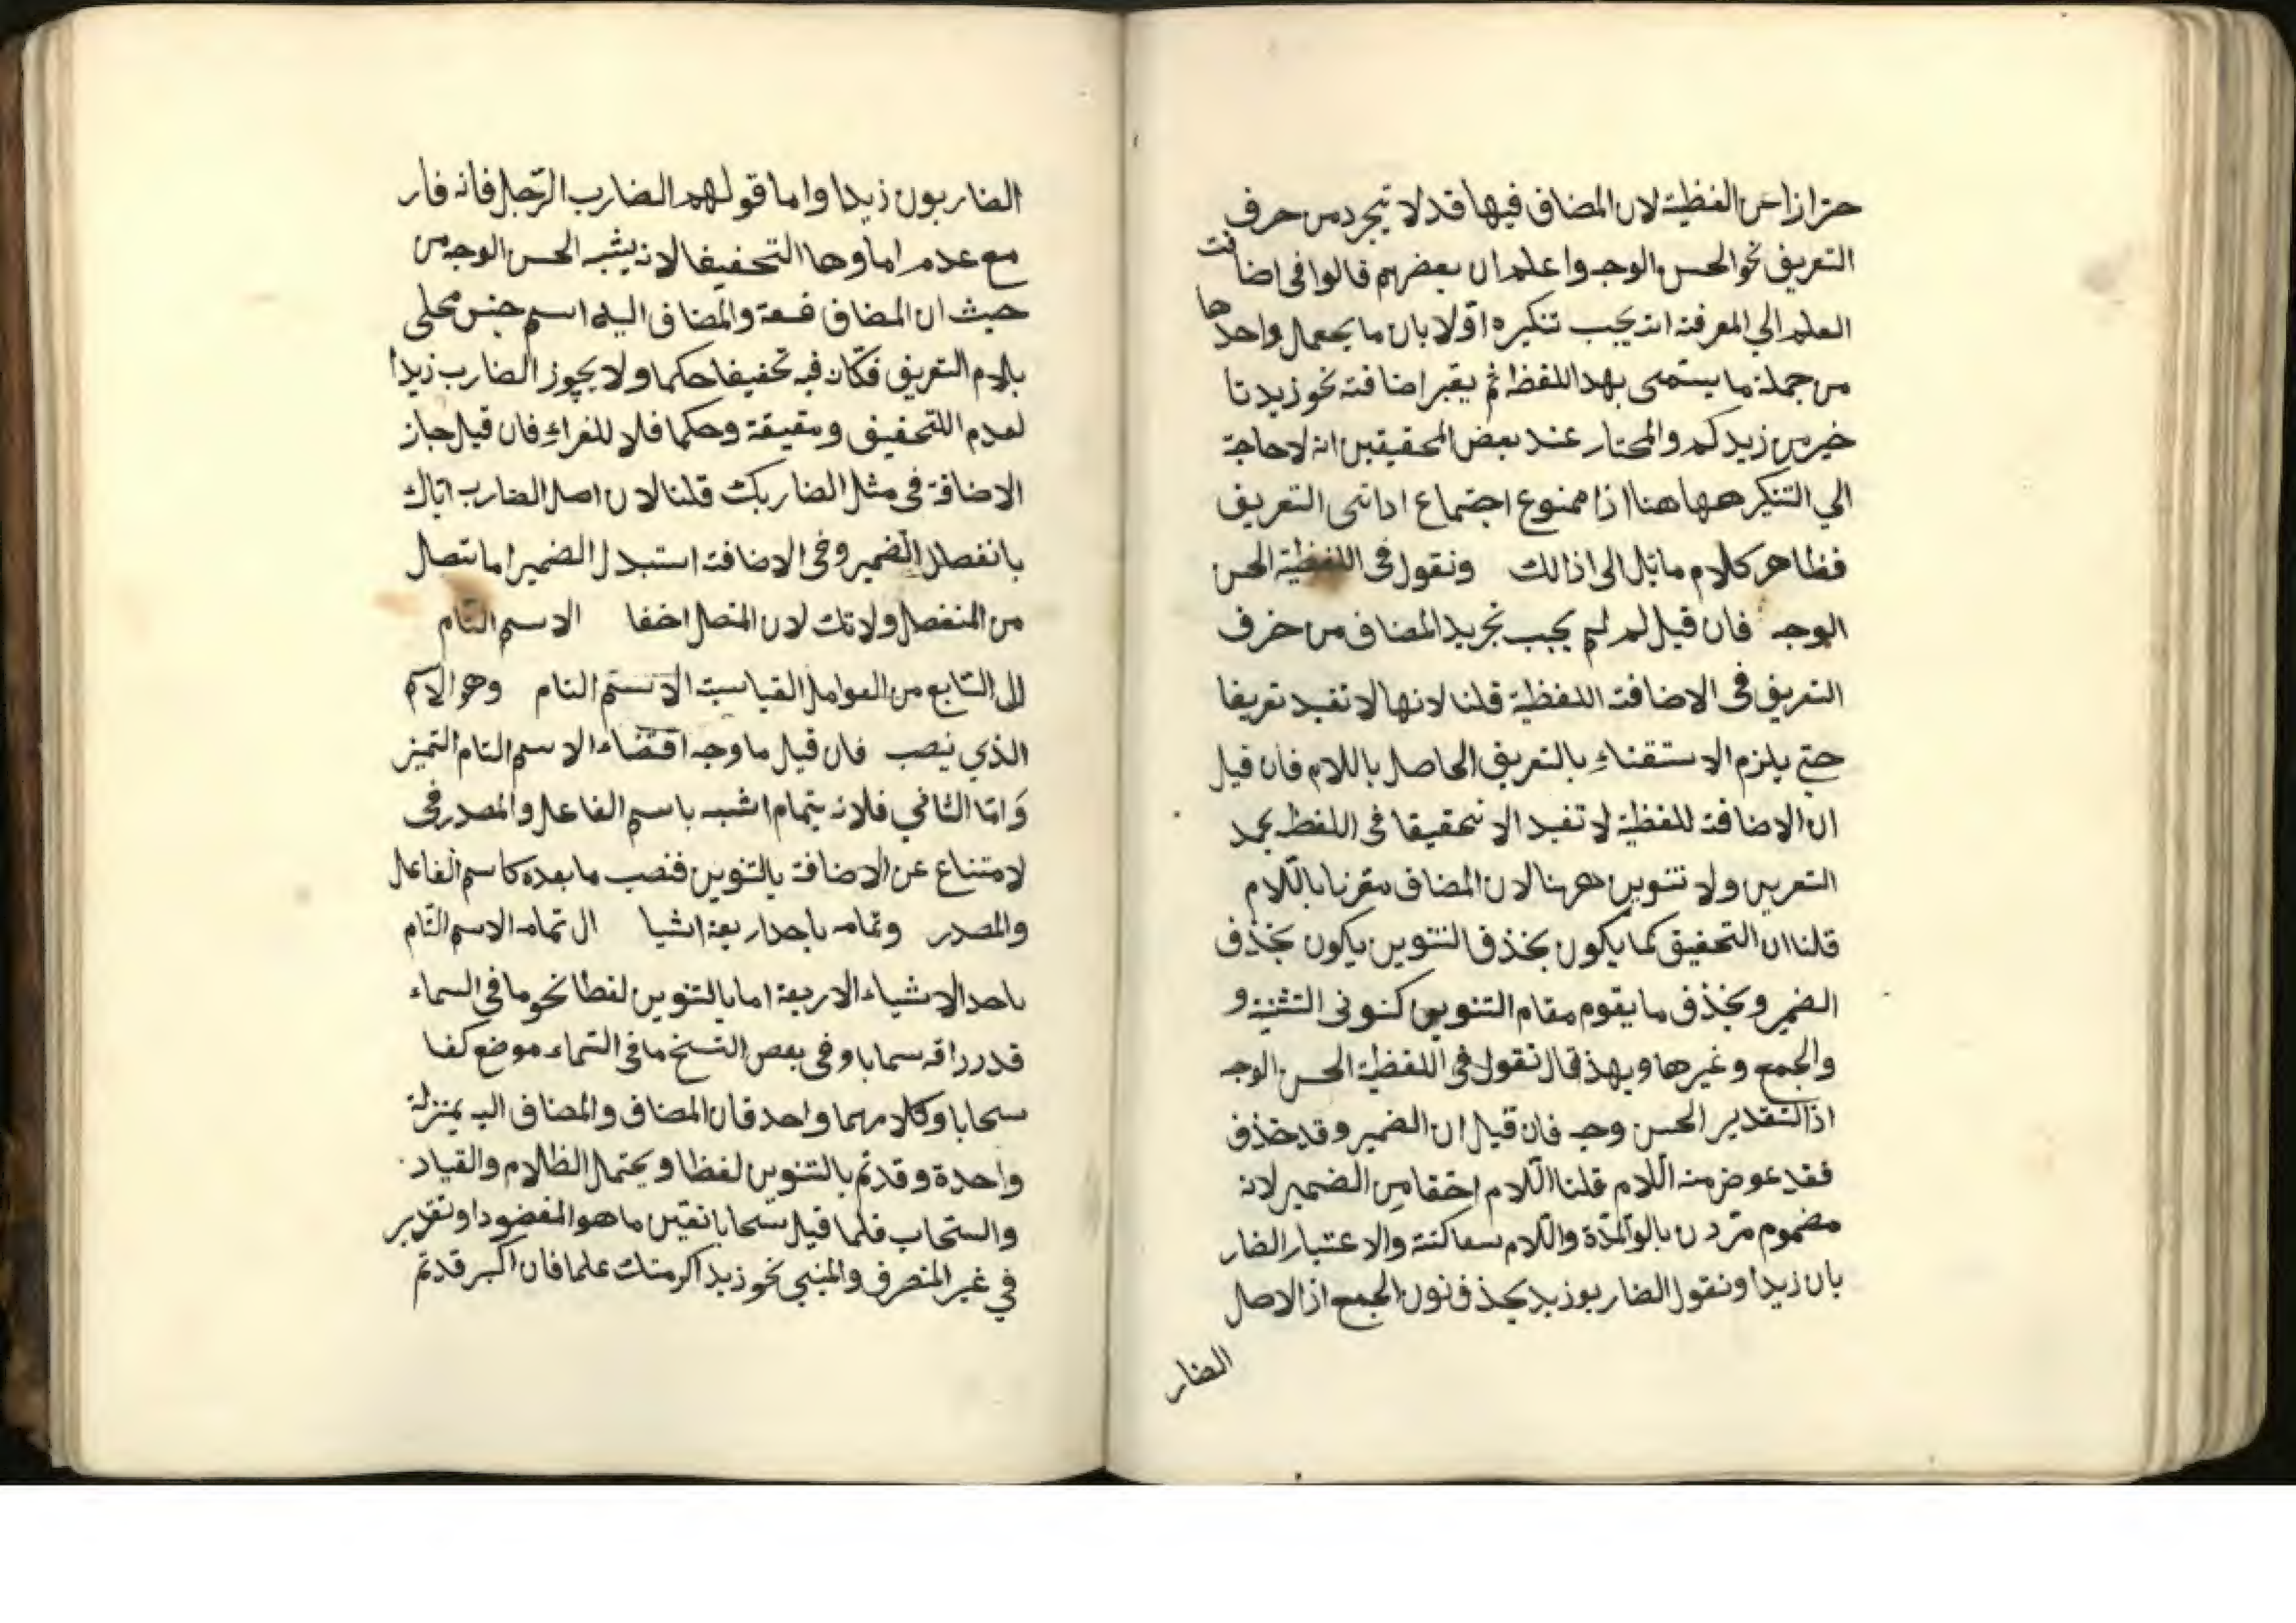 حترازا عن الفظية لان المضاف فيها قد لا يتجرد من حرف
التعريف نحو الحسن الوجه واعلم ان بعضهم قالوا في اضافت
العلم الي المعرفة انه يجب تنكيره اولا بان ما يجعل واحدها
من جملة ما يستمى بهد اللفظ ثم يقبر اضافته نحو زيد تا
خير من زيدكم والمختار عند بعض المحقيقين انه لا حاجة
الي التنكير ههاهنا اذا ممنوع اجتماع اداتى التعريف
فظاهر كلام ماتل الى اذالك ونقول في اللفظية الحسن
الوجه فان قيل لم لم يجب تجريد المضاف من حرف
التعريف فى الاضافة اللفظية قلنا لانها لا تفيد تعريفا
حتى يلزم الاستقناء بالتعريف الحاصل باللام فان قيل
ان الاضافة للفظية لا تفيد الا تحقيقا في اللفظ بحمد
التعريس ولا تنوين ههنا لان المضاف مقرنا باللام
قلنا ان التحفيق كما يكون بخذف التنوين يكون بخذف
الضمير وبخذف ما يقوم مقام التنوين كنونى التثنية و
والجمع وغيرها وبهذ قال نقول فى اللفظية الحسن الوجه
اذ التقدير الحسن وجه فان قيل ان الضمير وقد حذف
فقد عوض منه اللام قلنا اللام اخقا من الضمير لانه
مضموم مردن بالو المدة واللام ساكنة والاعتبار الضار
بان زيدا ونقول الضاربو زيد بحذف نون الجمع اذ الاصل
الضار
الضاربون زيدا واما قولهم الضارب الرجل فانه فار
مع عدم اماوها التحفيفا لانه يشبه الحسن الوجه من
حيث ان المضاف صفة والمضاف اليه اسم جنس محلى
بالام التعريف فكان فيه تخفيفا حكما ولا يجوز الضارب زيدا
لعدم اللتحفيف وحقيقة وحكما فلا للفراء فان قيل جاز
الاضافة في مثل الضاربك قلنا لان اصل الضارب اياك
بانفصال الضمير وفى الاضافة استبدل الضمير اما نتصال
من المنفصل ولاتك لان المتصل اخفا الاسم التام
لل السابع من العوامل القياسية الاسم التام وهو الاسم
الذي نيصب فان قيل ما وجه اقتضاء الاسم التام التميز
وامّا الثاني فلانه يتمام اشبه باسم الفاعل والمصدر فى
لامتناع عن الاضافة بالتنوين فنصب ما بعده كاسم الفاعل
والمصدر وتمامه باحد اربعة اشيا ال تمامه الاسم التام
باحد الاشياء الاربعة اما بالتنوين لفظا نحو ما في السماء
قدر راقه سمابا وفى بعض النسخ ما فى السماء موضع كفا
سحابا وكلامهما واحد فان المضاف والمضاف اليه بمنزلة
واحدة وقد تم بالتنوين لفظا ويحتمل الظلام والقياد
والسحاب فلما قيل سحابا نقين ما هو المقضود اوتقدير
في غير المنصرف والمبني نحو زيد اكرمنك علما فان اكبر قد تم